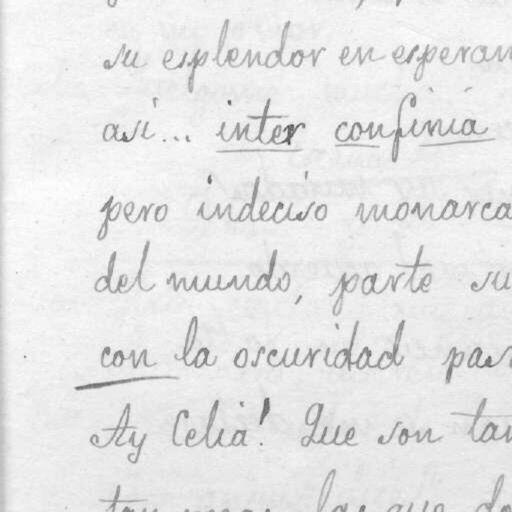 su esplendor en esperan
así... inter confiniá
pero indeciso monarca
del mundo, parte su
con la oscuridad pas
Ay Celia! Que son tan
las que do